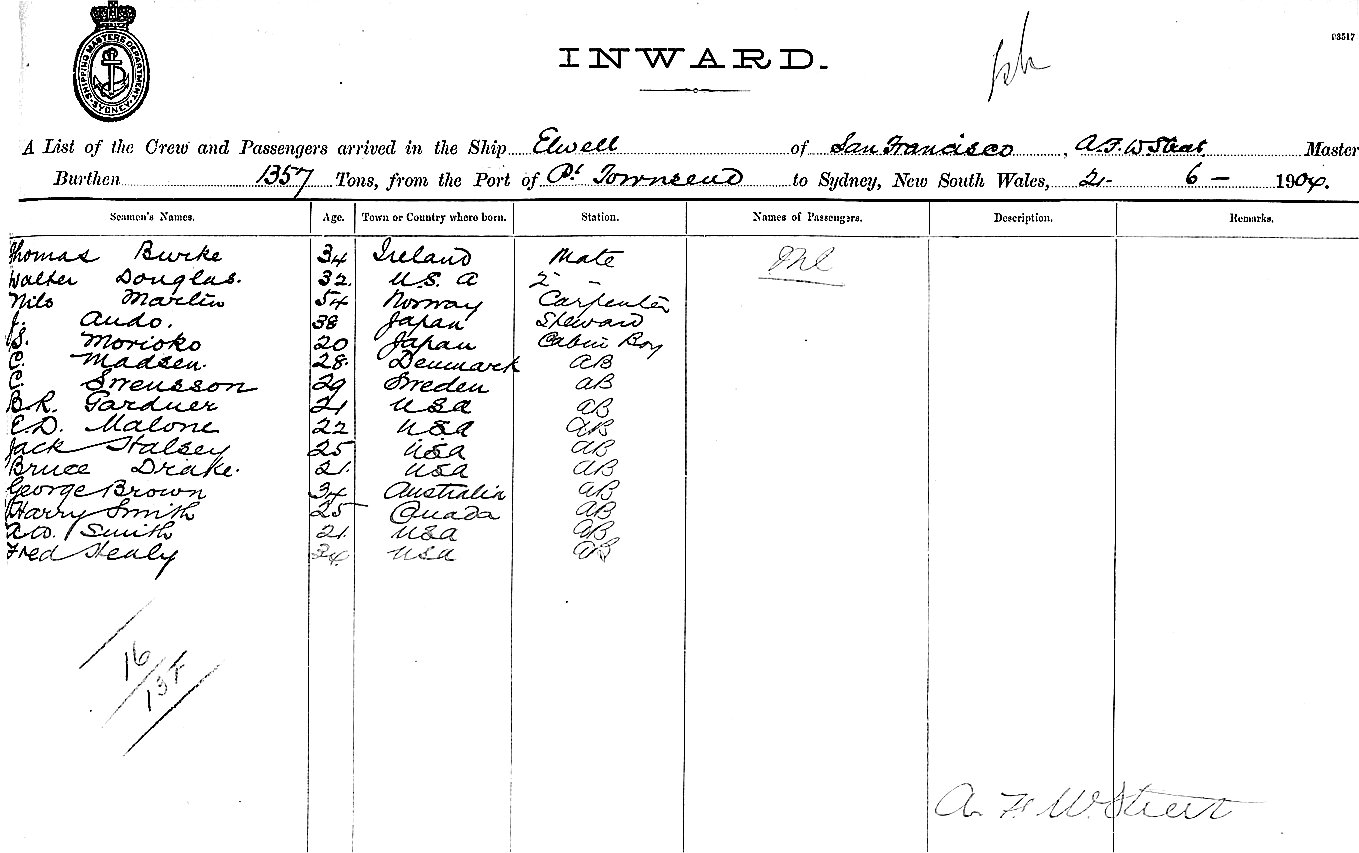 SHIPPING MASTERS DEPARTMENT SYDNEY
INWARD.
03517
A List of the Crew and Passengers arrived in the Ship Elwell of San Francisco, A.F.W Street Master
Burthen 1357 Tons, from the Port of Pt. Townsend to Sydney, New South Wales, 21- 6 - 1904.
Seamen's Names. Age. Town or Country where born. Station. Names of Passengers. Description. Remarks.
Thomas Burke 34 Ireland Mate Nil
Walter Douglas. 32 U.S.A 2 -
Nils Martin 54 Norway Carpenter
J. Ando. 38 Japan Steward
S. Morioko 20 Japan Cabin Boy
C. Madsen. 28. Denmark AB
C. Swensson 29 Sweden AB
B.R. Gardner 21 USA AB
E.D. Malone 22 USA AB
Jack Halsey 25 USA AB
Bruce Drake. 21. USA AB
George Brown 34 Australia AB
Harry Smith 25 Canada AB
Smith 21. USA AB
Fred Healy 34 USA AB
16
A F W Street